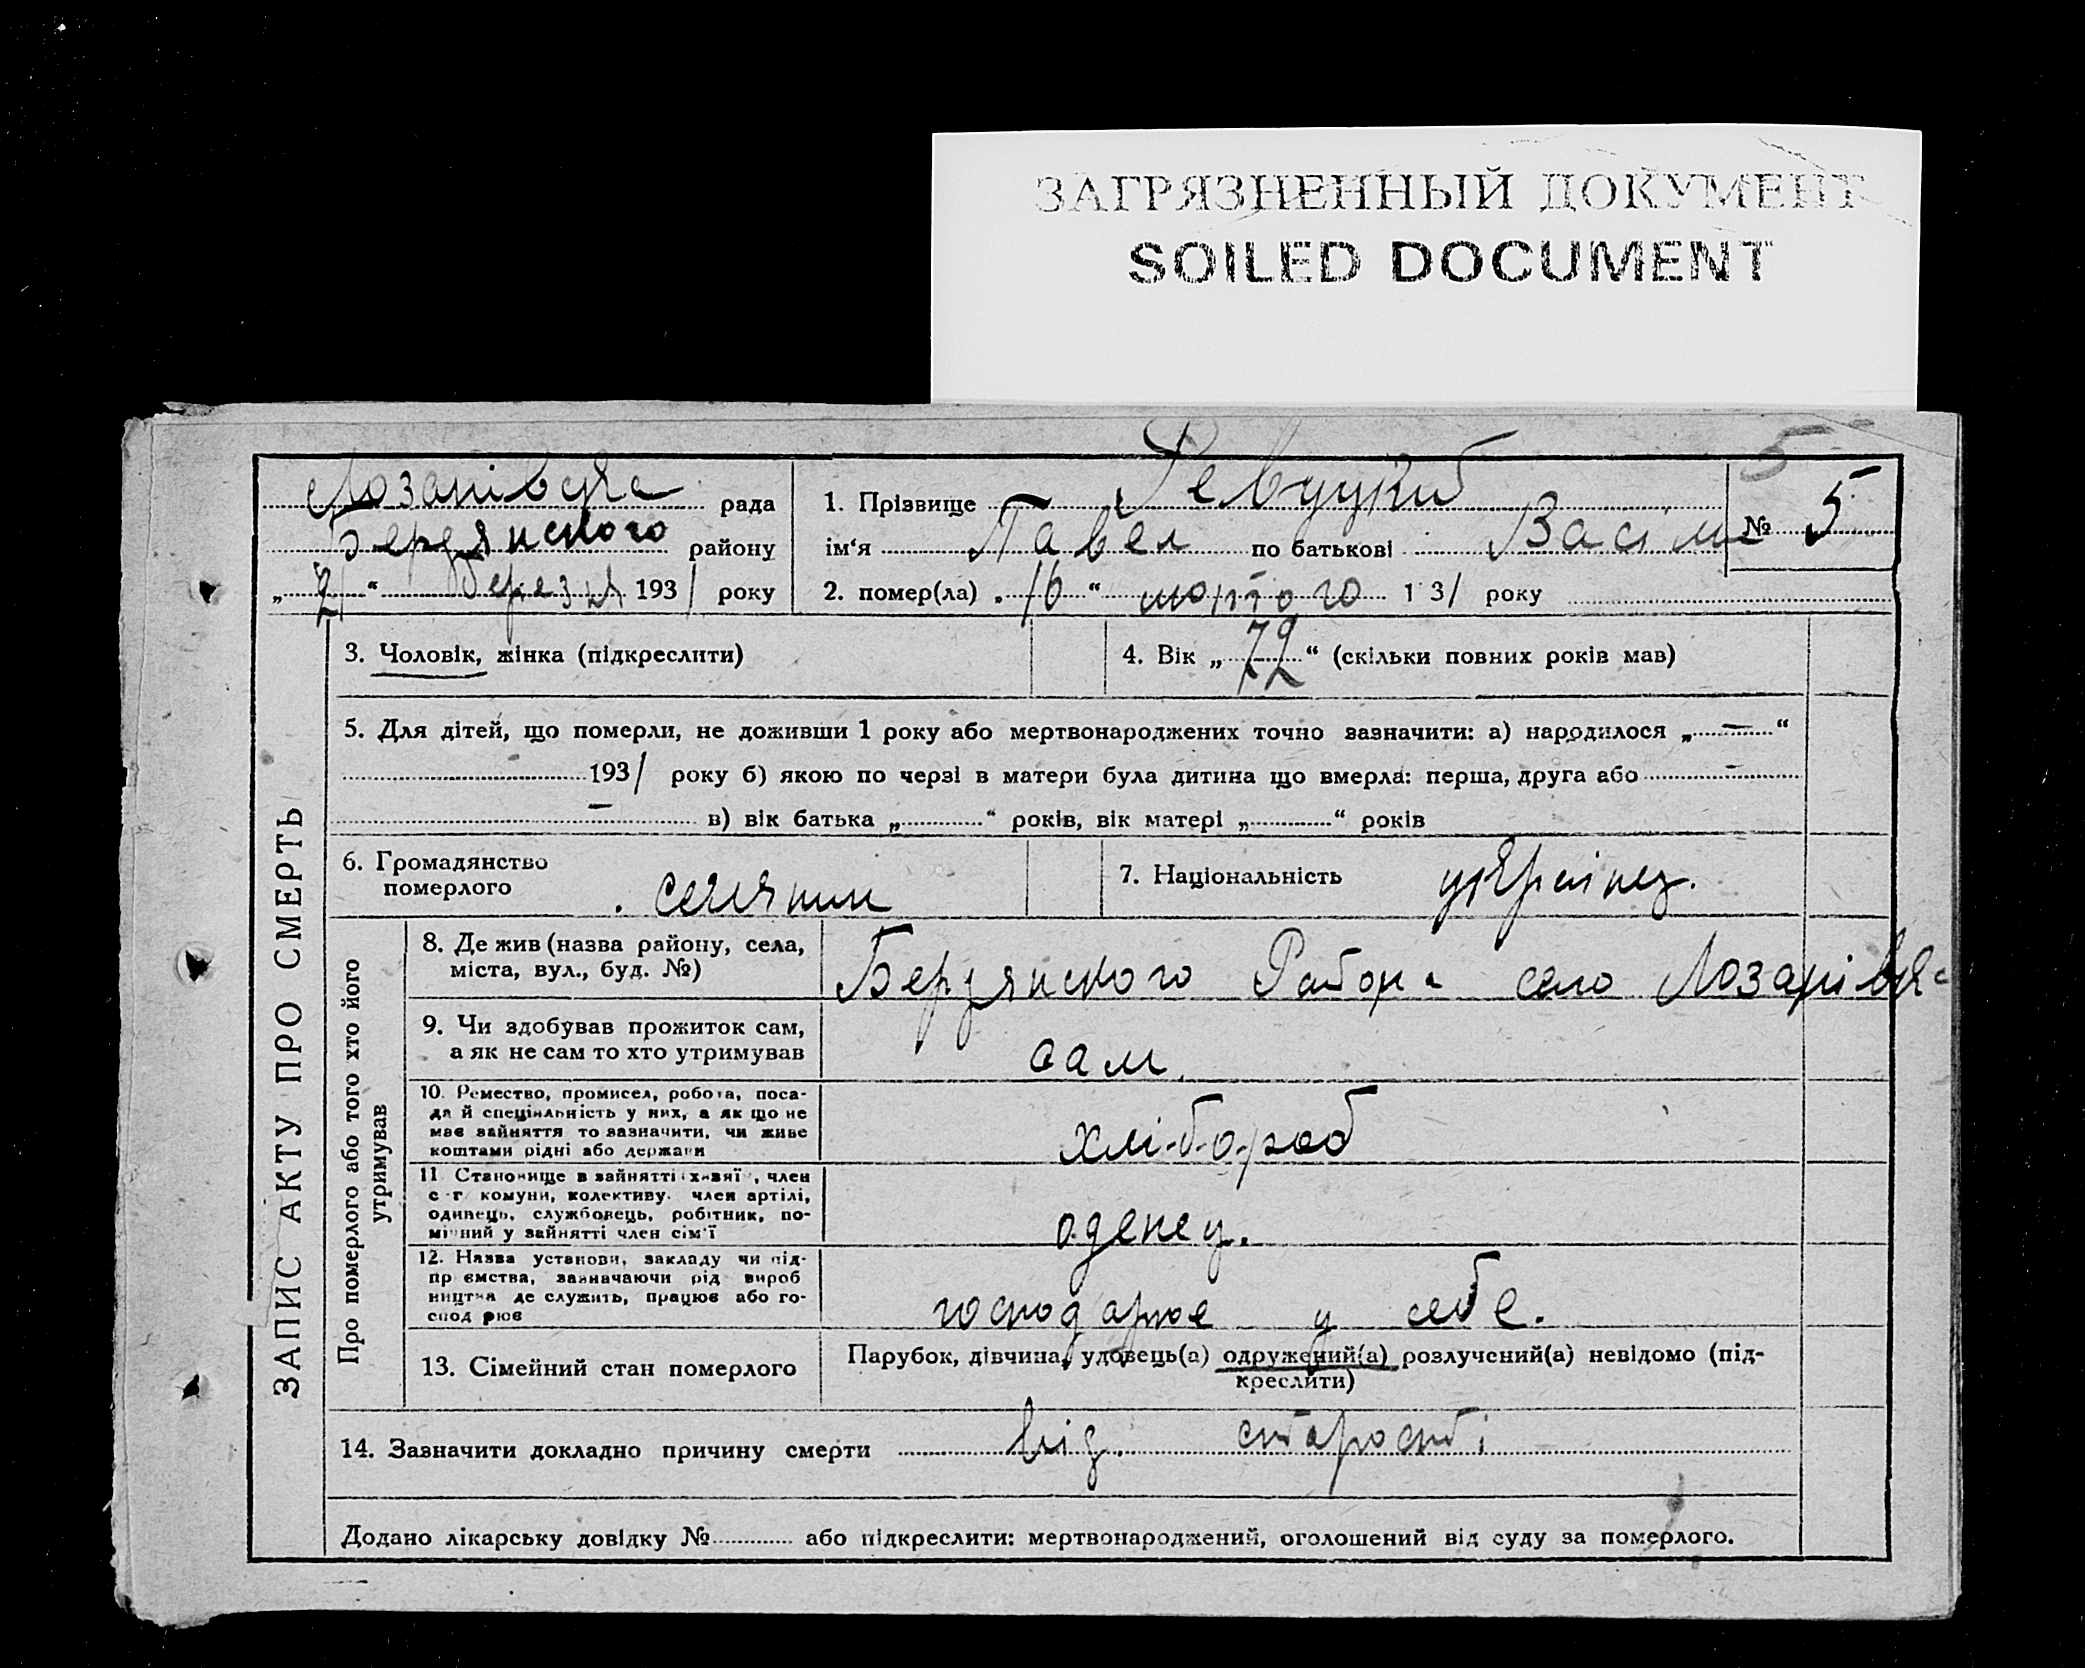 ЗАГРЯЗНЕННЫЙ ДОКУМЕНТ
SOILED DOCUMENT
5
Лозанівська рада
Бердянского району
„ 21 “ березня 1931 року
1. Прізвище Ревуцкий
ім‘я Павел по батькові Васіль
№ 5
2. помер(ла) „ 16 “ лютого 1 31 року
ЗАПИС АКТУ ПРО СМЕРТЬ
3. Чоловік, жінка (підкреслити)
4. Вік „ 72 “ (скільки повних років мав)
5. Для дітей, що померли, не доживши 1 року або мертвонароджених точно зазначити: а) народилося „ — “
1931 року б) якою по черзі в матери була дитина що вмерла: перша, друга або —
— в) вік батька „ “ років, вік матері „ “ років
6. Громадянство
померлого
селянин
7. Національність українец.
Про померлого або того хто його
утримував
8. Де жив (назва району, села,
міста, вул., буд. №)
Бердянского Района село Лозанівка
9. Чи здобував прожиток сам,
а як не сам то хто утримував
сам
10. Ремество, промисел, робота, поса-
да й спеціяльність у них, а як що не
має зайняття то зазначити, чи живе
коштами рідні або держави
хлібороб
11 Становище в зайнятті хазяї , член
с г комуни, колективу. член артілі,
одинець, службовець, робітник, по-
мічний у зайнятті член сім‘ї
оденец.
12. Назва установи, закладу чи під-
пр ємства, зазначаючи рід вироб
ництва де служить, працює або го-
спод рює
господарює у себе.
13. Сімейний стан померлого
Парубок, дівчина, удовець(а) одружений(а) розлучений(а) невідомо (під-
креслити)
14. Зазначити докладно причину смерти від старості
Додано лікарську довідку № або підкреслити: мертвонароджений, оголошений від суду за померлого.